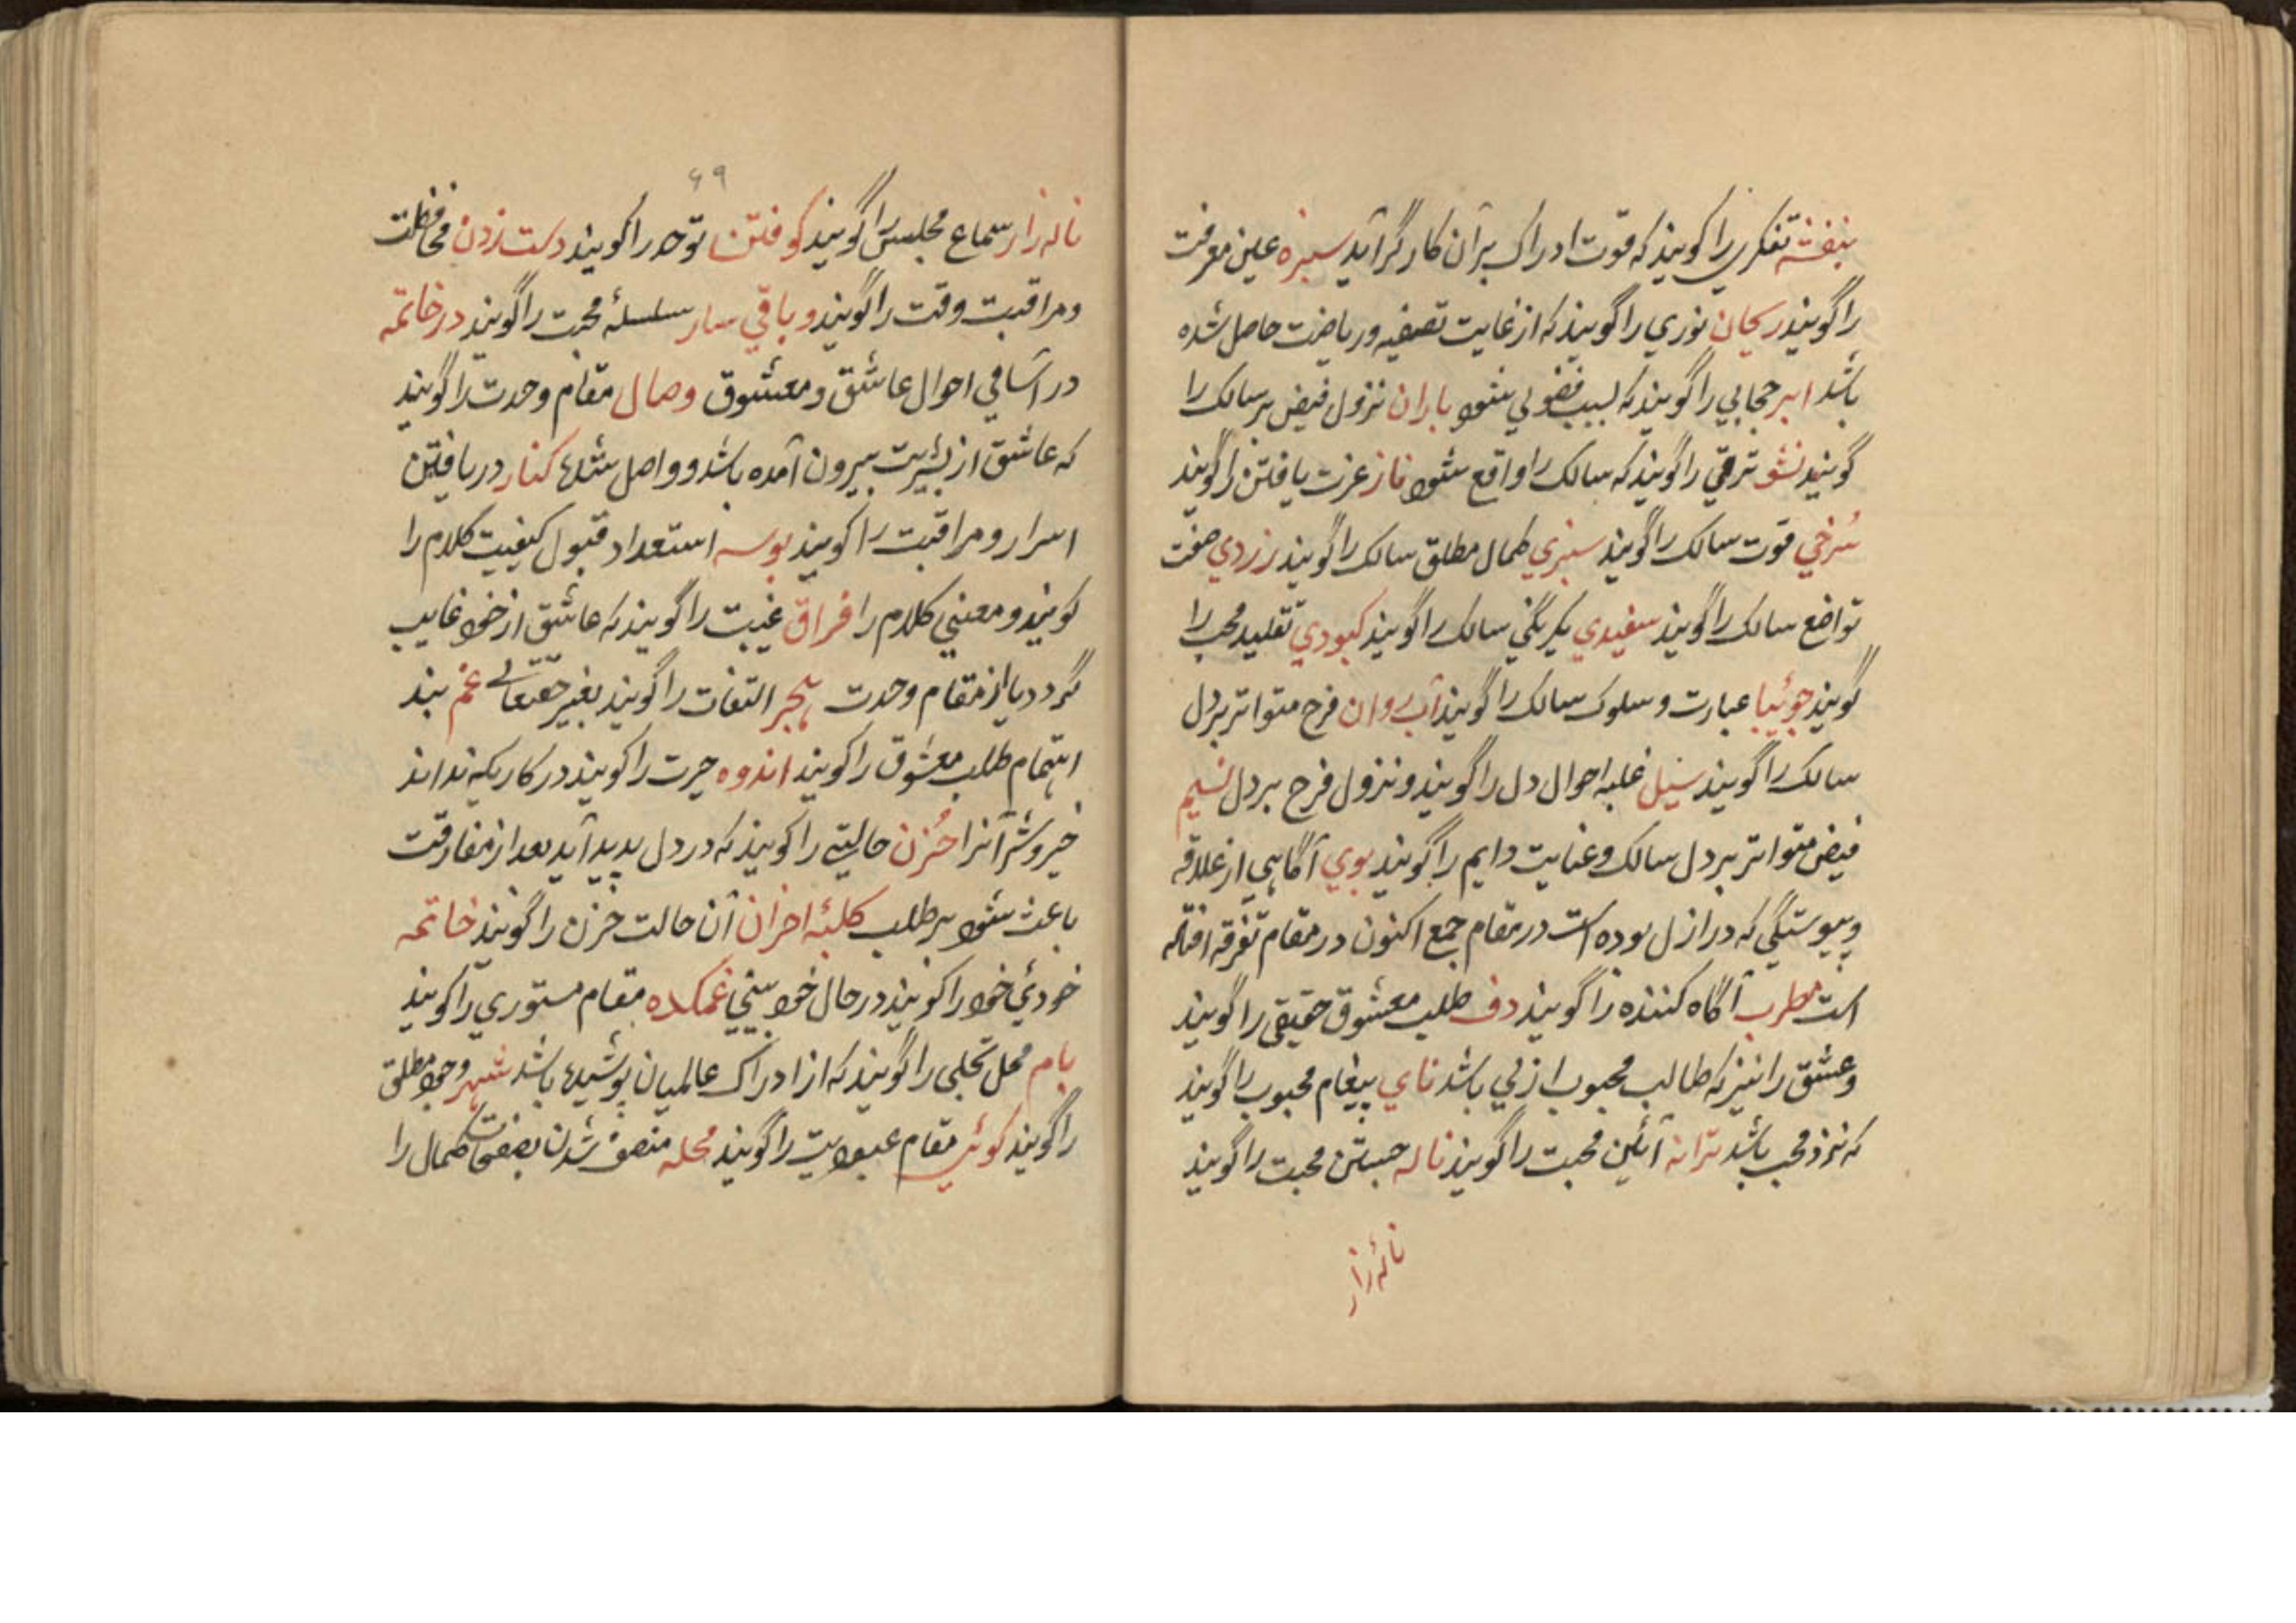 بنفشه تفکری را کویند که قوت ادراک بر آن کارگر آید سبزه عین معرفت
را گویند ریحان نوری را گویند که از غایت تصفیه و ریاضت حاصل شده
باشد ابر حجابی را گویند که بسبب فضولی شود باران نزول فیض بر سالک را
گویند نشو ترقی را گویند که سالک را واقع شود ناز عزت یافتن را گویند
سُرخی قوت سالک را گویند سبزی کمال مطلق سالک را گویند زردی صفت
تواضع سالک را گویند سفیدی یکرنگی سالک را گویند کبودی تقلید محب را
گویند عبارت و سلوک سالک را گویند آب روان فرح متواتر بر دل
سالک را گویند سیل غلبه احوال دل را گویند و نزول فرح بر دل نسیم
فیض متواتر بر دل سالک و عنایت دایم را گویند بوی آگاهی از علاقه
و پیوستگی که در ازل بوده است در مقام جمع اکنون در مقام تفرقه افتاده
است مطرب آگاه کننده را گویند دف طلب معشوق حقیقی را گویند
و عشق را نیز که طالب محبوب ازلی باشد نای پیغام محبوب را گویند
که نزد محب باشد ترانه آئین محبت را گویند ناله جستن محبت را گویند
نالهٔ زار
۶۹
ناله زار سماع مجلس را گویند کوفتن توحد را کویند دست زدن محافظت
و مراقبت وقت را گویند و باقی سار سلسلهٔ محبت را گویند در خاتمه
در اسامی احوال عاشق و معشوق وصال مقام وحدت را گویند
که عاشق از بشریت بیرون آمده باشد و واصل شده کنار دریافتن
اسرار و مراقبت را کویند بوسه استعداد قبول کیفیت کلام را
کویند و معنی کلام را فراق غیبت را گویند که عاشق از خود غایب
گردد یا از مقام وحدت هجر التفات را گویند بغیر حقتعالی غم بند
اهتمام طلب معشوق را کویند اندوه حیرت را کویند در کاریکه نداند
خیر و شر آنرا حُزن حالتی را کویند که در دل پدید آید بعد از مفارقت
باعث شود بر طلب کلبهٔ احزان آن حالت حزن را گویند خاتمه
خودئ خود را کویند در حال خود بینی غمکده مقام مستوری را کویند
بام محل تجلی را گویند که از ادراک عالمیان پوشیده باشد شهر وجود مطلق
را گویند کوئی مقام عبودیت را گویند محله متصف شدن بصفات کمال را